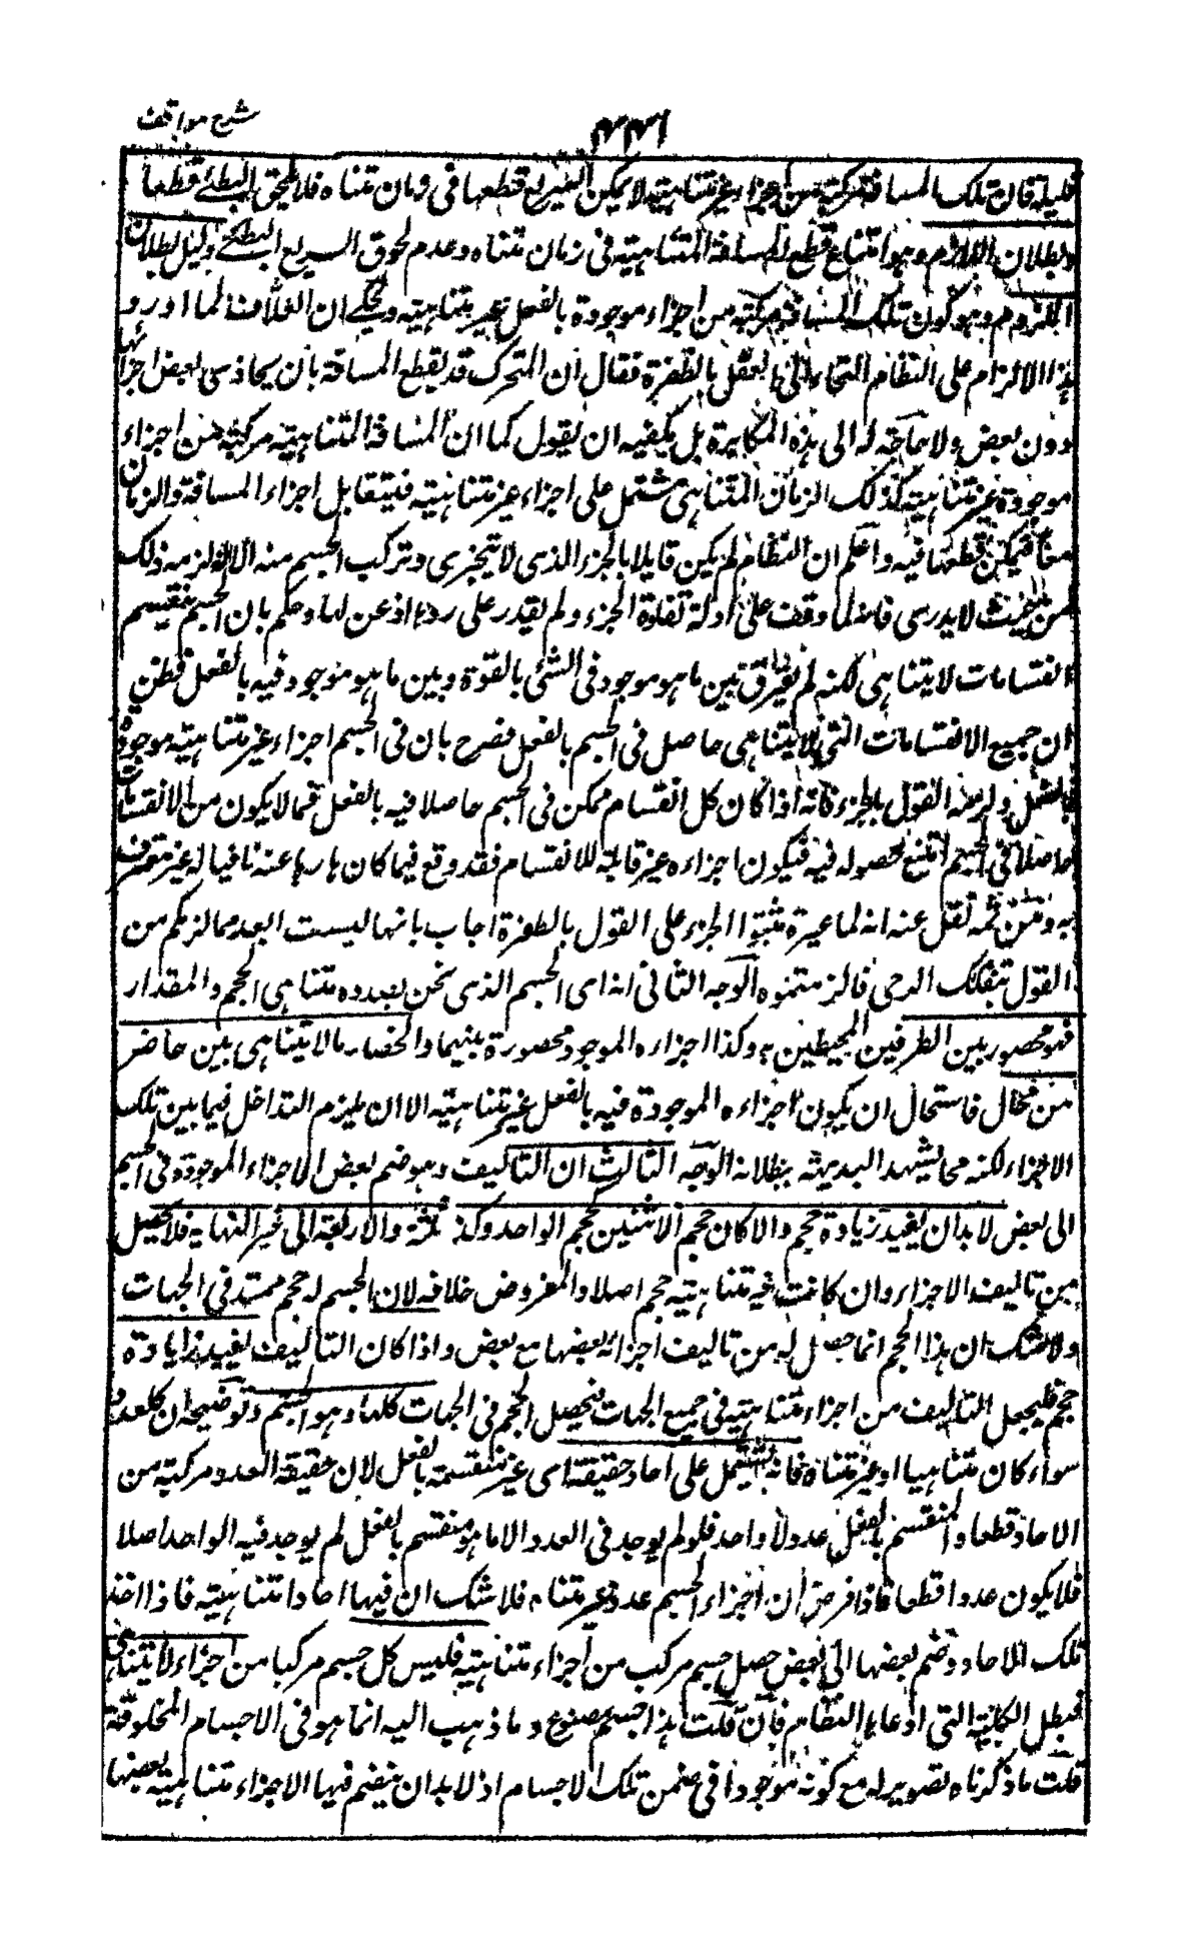 شرح مواقف
۴۴۱
قليلة فان تلك المسافة مركبة من اجزاء غير متناهية لا يمكن السريع قطعها فى زمان متناه فلا يلحق البطئ قطعا
وبطلان اللازم وهو امتناع قطع المسافة المتناهية فى زمان متناه وعدم لحوق السريع البطئ دليل بطلان
الملزوم وهو كون تلك المسافة مركبة من اجزاء موجودة بالفعل غير متناهية ويحكى ان العلاف لما اورد
هذا الالزام على النظام التجاء الى القول بالطفرة فقال ان المتحرك قد يقطع المسافة بان يحاذى بعض اجزائها
دون بعض ولا حاجة له الى هذه المكابرة بل يكفيه ان يقول كما ان المسافة المتناهية مركبة من اجزاء
موجودة غير متناهية كذلك الزمان المتناهى مشتمل على اجزاء غير متناهية فيتقابل اجزاء المسافة والزمان
معا فيمكن قطعها فيه واعلم ان النظام لم يكن قايلا بالجزء الذى لا يتجزى وتركب الجسم منه الا انه لزمه ذلك
من حيث لا يدرى فانه لما وقف على ادلة نفاة الجزء ولم يقدر على ردها اذعن لها وحكم بان الجسم ينقسم
انقسامات لا يتناهى لكنه لم يفرق بين ما هو موجود فى الشئ بالقوة وبين ما هو موجود فيه بالفعل فظن
ان جميع الانقسامات التى لا يتناهى حاصل فى الجسم بالفعل فصرح بان فى الجسم اجزاء غير متناهية موجودة
بالفعل ولزمه القول بالجزء فانه اذا كان كل انقسام ممكن فى الجسم حاصلا فيه بالفعل فما لا يكون من الانقسامات
حاصلا فى الجسم امتنع حصوله فيه فيكون اجزاءه غير قابلة للانقسام فقد وقع فيما كان هاربا عنه نافيا له غير معترف
به ومن ثمه نقل عنه انه لما عيره مثبتوا الجزء على القول بالطفرة اجاب بانها ليست ابعد مما لزمكم من
القول بتفكك الرحى فالزمتموه الوجه الثانى انه اى الجسم الذى نحن بصدده متناهى الحجم والمقدار
فهو محصور بين الطرفين المحيطين به وكذا اجزاءه الموجود محصورة بينهما وانحصار ما لا يتناهى بين حاضر
من محال فاستحال ان يكون اجزاءه الموجودة فيه بالفعل غير متناهية الا ان يلزم التداخل فيما بين تلك
الاجزاء لكنه مما يشهد البديهة ببطلانه الوجه الثالث ان التاليف وهو ضم بعض الاجزاء الموجودة فى الجسم
الى بعض لا بد ان يفيد زيادة حجم والا كان حجم الاثنين كحجم الواحد وكذ ثلثة والاربعة الى غير النهاية فلا يحصل
من تاليف الاجزاء وان كانت غير متناهية حجم اصلا والمفروض خلافه لان الجسم له حجم ممتد فى الجهات
ولا شك ان هذا الحجم انما حصل له من تاليف اجزائه بعضها مع بعض واذا كان التاليف يفيد زيادة
حجم فليجعل التاليف من اجزاء متناهية فى جميع الجهات فيحصل الحجم فى الجهات كلها وهو الجسم وتوضيحه ان كل عدد
سواء كان متناهيا او غير متناه فانه يشتمل على احاد حقيقة اى غير منقسمة بالفعل لان حقيقة العدد مركبة من
الاحاد قطعا والمنقسم بالفعل عدد لا واحد فلو لم يوجد فى العدد الا ما هو منقسم بالفعل لم يوجد فيه الواحد اصلا
فلا يكون عددا قطعا فاذا فرض ان اجزاء الجسم عدد غير متناه فلا شك ان فيها احادا متناهية فاذا اخذ
تلك الاحاد وضم بعضها الى بعض حصل جسم مركب من اجزاء متناهية فليس كل جسم مركبا من اجزاء لا يتناهى
فبطل الكلية التى ادعاها النظام فان قلت هذا جسم مصنوع وما ذهب اليه انما هو فى الاجسام المخلوقة
قلت ما ذكرناه تصوير له مع كونه موجودا فى ضمن تلك الاجسام اذ لا بد ان ينضم فيها الاجزاء متناهية بعضها